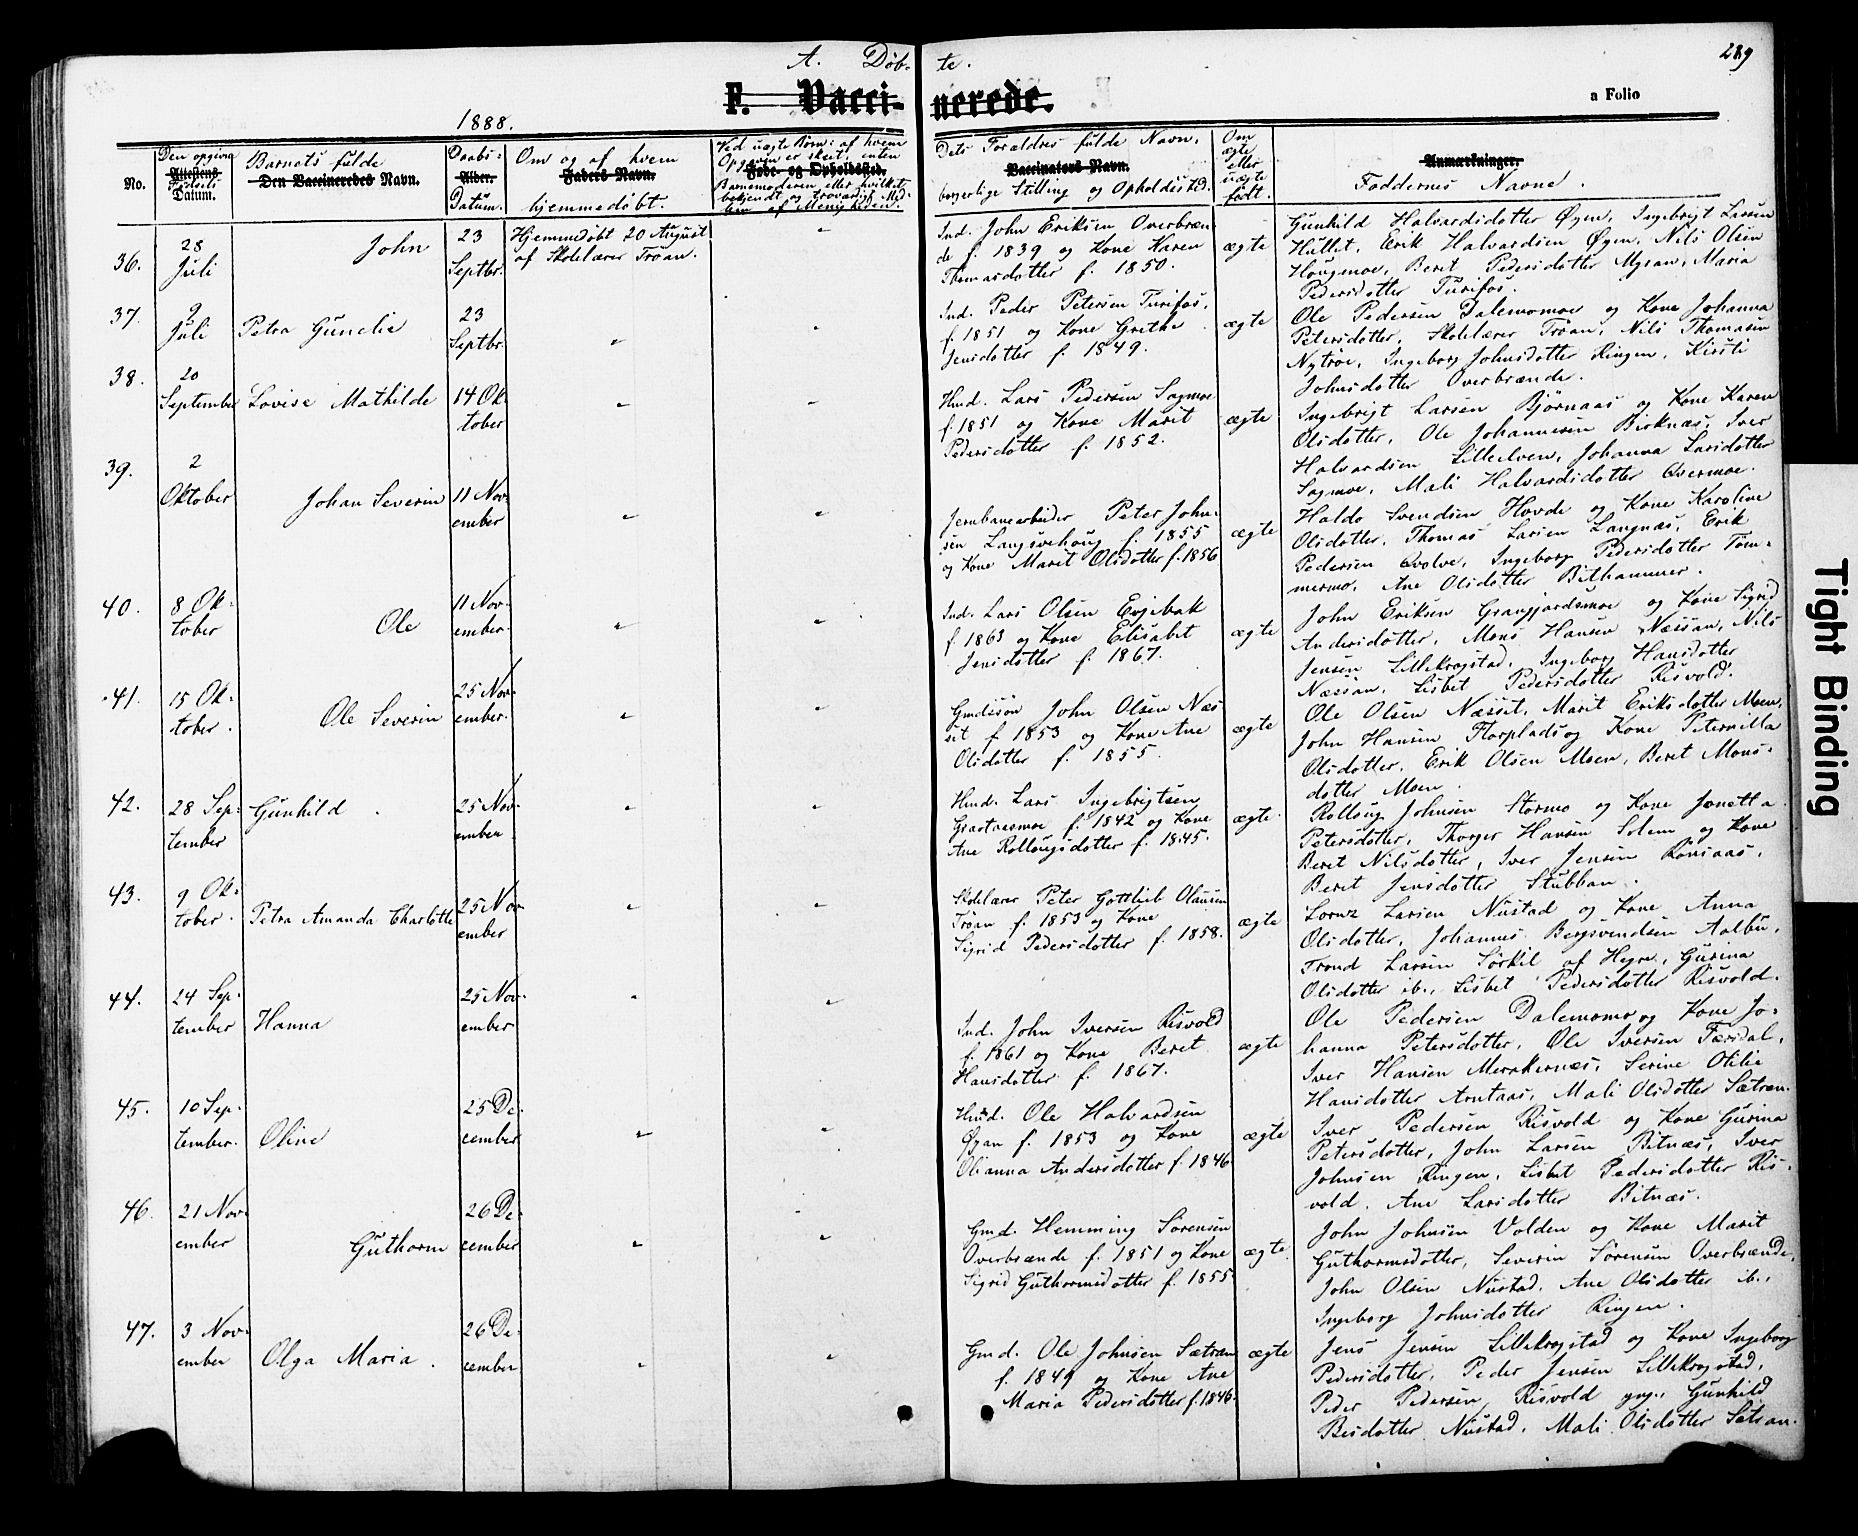 A. Døbte.
289
F. Vaccinerede.
a Folio
1888.
No.
Den opgivne
Attestens
Fødsels
Datum.
Barnets fulde
Den Vaccineredes Navn.
Daabs-
Alder.
Datum.
Om og af hvem
Faders Navn.
hjemmedøbt.
Ved uægte Børn: af hvem
Opgaven er skeet, enten
Føde- og Opholdssted.
Barnemoderen eller hvilket
bekjendt og troværdigt Med-
lem af Menigheden.
Dets Forældres fulde Navn,
Vaccinators Navn.
borgerlige Stilling og Opholdssted.
Om
ægte
eller
uægte
født.
Anmærkninger.
Faddernes Navne.
36.
28
Juli
John
23
Septbr.
Hjemmedøbt 20 August
af Skolelærer Trøan.
Ind. John Eriksen Overbræn-
de f. 1839 og Kone Karen
Thomasdatter f. 1850.
ægte
Gunhild Halvardsdatter Øyen, Ingebrigt Larsen
Hullet, Erik Halvardsen Øyen, Nils Olsen
Hougmoe, Beret Pedersdatter Myran, Maria
Pedersdatter Turifos.
37.
9
Juli
Petra Gunelie
23
Septbr.
Ind. Peder Petersen Turifos,
f. 1851 og Kone Grethe
Jensdatter f. 1849.
ægte
Ole Pedersen Dalemomoe og Kone Johanna
Petersdatter, Skolelærer Trøan, Nils Thomasen
Nytrøe, Ingeborg Johnsdatter Ringen, Kirsti
Johnsdatter Overbrænde.
38.
20
September
Lovise Mathilde
14 Ok-
tober
Hmd. Lars Pedersen Sagmoe
f. 1851 og Kone Marit
Pedersdatter f. 1852.
ægte
Ingebrigt Larsen Bjørnaas og Kone Karen
Olsdatter, Ole Johannesen Birknæs, Iver
Halvardsen Lilleelven, Johanna Larsdatter
Sagmoe, Mali Halvardsdatter Overmoe.
39.
2
Oktober
Johan Severin
11 Nov-
ember
Jernbanearbeider Peter John-
sen Langsvehoug f. 1855
og Kone Marit Olsdatter f. 1856
ægte
Haldo Svendsen Hovde og Kone Karoline
Olsdatter, Thomas Larsen Langnæs, Erik
Pedersen Qvolve, Ingeborg Pedersdatter Tøm-
mermo, Ane Olsdatter Bithammer.
40.
8 Ok-
tober
Ole
11 Nov-
ember.
Ind. Lars Olsen Evjebak
f. 1863 og Kone Elisabet
Jensdatter f. 1867.
ægte
John Eriksen Grangjardsmoe og Kone Sigrid
Andersdatter, Mons Hansen Næssan, Nils
Jensen Lillekrogstad, Ingeborg Hansdatter
Næssan, Lisbet Pedersdatter Risvold.
41.
15 Ok-
tober.
Ole Severin
25 Nov-
ember.
Gmdssøn John Olsen Næs-
set f. 1853 og Kone Ane
Olsdatter f. 1855.
ægte
Ole Olsen Næsset, Marit Eriksdatter Moen,
John Hansen Florplads og Kone Peternilla
Olsdatter, Erik Olsen Moen, Beret Mons-
datter Moen.
42.
28 Sep-
tember
Gunhild.
25 Nov-
ember
Hmd. Lars Ingebrigtsen
f. 1842 og Kone
Ane Rollougsdatter f. 1845.
ægte.
Rolloug Johnsen Stormo og Kone Jonetta
Petersdatter, Thorger Hansen Solem og Kone
Beret Nilsdatter, Iver Jensen Rønsaas,
Beret Jensdatter Stubban.
43.
9 Ok-
tober.
Petra Amanda Charlotte
25 Nov-
ember
Skolelærer Peter Gottlieb Olausen
Trøan f. 1853 og Kone
Sigrid Pedersdatter f. 1858.
ægte
Lornz Larsen Nustad og Kone Anna
Olsdatter, Johannes Bergsvendsen Aalbu,
Trond Larsen Sørkil af Hegre, Gurina
Olsdatter ib., Lisbet Pedersdatter Risvold.
44.
24 Sep-
tember
Hanna
25 Nov-
ember
Ind. John Iversen Risvold
f. 1861 og Kone Beret
Hansdatter f. 1867.
ægte
Ole Pedersen Dalemomo og Kone Jo-
hanna Petersdatter, Ole Iversen Færsdal,
Iver Hansen Merakernæs, Serine Otilie
Hansdatter Arntaas, Mali Olsdatter Sætran.
45.
10 Sep-
tember.
Oline
25 De-
cember
Hmd. Ole Halvardsen
Øyan f. 1853 og Kone
Olianna Andersdatter f. 1846
ægte
Iver Pedersen Risvold og Kone Gurina
Petersdatter, John Larsen Bitnæs, Iver
Johnsen Ringen, Lisbet Pedersdatter Ris-
vold, Ane Larsdatter Bitnæs.
46.
21 Nov-
ember
Guthorm
26 De-
cember
Gmd. Hemming Sørensen
Overbrænde f. 1851 og Kone
Sigrid Guthormsdatter f. 1855.
ægte
John Johnsen Volden og Kone Marit
Guthormsdatter, Severin Sørensen Overbrænde,
John Olsen Nustad, Ane Olsdatter ib.,
Ingeborg Johnsdatter Ringen.
47.
3 Nov-
ember
Olga Maria.
26 De-
cember
Gmd. Ole Johnsen Sætran
f. 1849 og Kone Ane
Maria Pedersdatter f. 1846.
ægte
Jens Jensen Lillekrogstad og Kone Ingeborg
Pedersdatter, Peder Jensen Lillekrogstad,
Peder Pedersen Risvold yng., Gunhild
Besdatter Nustad, Mali Olsdatter Sætran.
Tight Binding